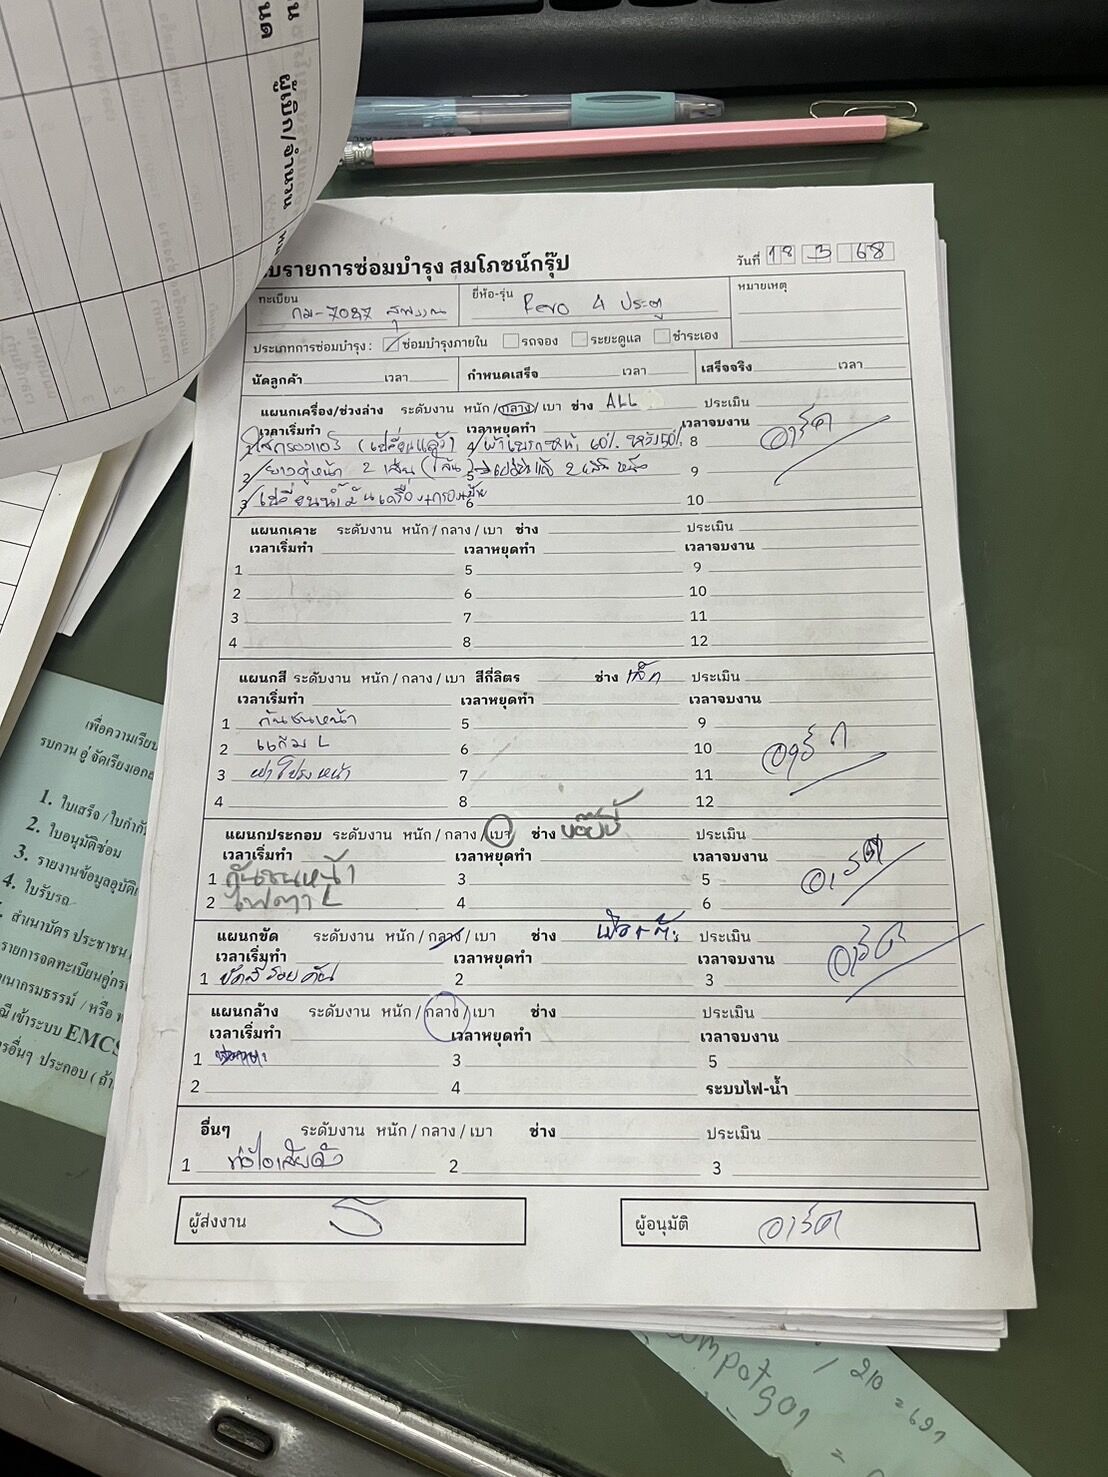 ผู้เบิก/จำนวน
ใบรายการซ่อมบำรุง สมโภชน์กรุ๊ป
วันที่ 18 3 68
ทะเบียน กม-7087 สุพรรณ
ยี่ห้อ-รุ่น Revo 4 ประตู
หมายเหตุ
ประเภทการซ่อมบำรุง : ซ่อมบำรุงภายใน รถจอง ระยะดูแล ชำระเอง
นัดลูกค้า เวลา กำหนดเสร็จ เวลา เสร็จจริง เวลา
แผนกเครื่อง/ช่วงล่าง ระดับงาน หนัก / กลาง / เบา ช่าง ALL ประเมิน
เวลาเริ่มทำ เวลาหยุดทำ เวลาจบงาน อาร์ต
1 ไส้กรองแอร์ (เปลี่ยนแล้ว) 4 ผ้าเบรกหน้า 60% หลัง 50% 8
2 ยางคู่หน้า 2 เส้น 5 2 เส้น หลัง 9
3 เปลี่ยนน้ำมันเครื่อง+กรอง+ป้าย 6 10
แผนกเคาะ ระดับงาน หนัก / กลาง / เบา ช่าง ประเมิน
เวลาเริ่มทำ เวลาหยุดทำ เวลาจบงาน
1 5 9
2 6 10
3 7 11
4 8 12
แผนกสี ระดับงาน หนัก / กลาง / เบา สีกี่ลิตร ช่าง เล็ก ประเมิน
เวลาเริ่มทำ เวลาหยุดทำ เวลาจบงาน
1 กันชนหน้า 5 9
2 แก้ม L 6 10 อาร์ต
3 ฝาโปรงหน้า 7 11
4 8 12
แผนกประกอบ ระดับงาน หนัก / กลาง / เบา ช่าง ประเมิน
เวลาเริ่มทำ เวลาหยุดทำ เวลาจบงาน
1 กันชนหน้า 3 5 อาร์ต
2 ไฟตา L 4 6
แผนกขัด ระดับงาน หนัก / กลาง / เบา ช่าง ประเมิน
เวลาเริ่มทำ เวลาหยุดทำ เวลาจบงาน อาร์ต
1 ขัดสีรอบคัน 2 3
แผนกล้าง ระดับงาน หนัก / กลาง / เบา ช่าง ประเมิน
เวลาเริ่มทำ เวลาหยุดทำ เวลาจบงาน
1 3 5
2 4 ระบบไฟ-น้ำ
อื่นๆ ระดับงาน หนัก / กลาง / เบา ช่าง ประเมิน
1 ท่อไอเสียดัง 2 3
ผู้ส่งงาน
ผู้อนุมัติ อาร์ต
เพื่อความเรียบ
รบกวน อู่ จัดเรียงเอก
1. ใบเสร็จ / ใบกำกั
2. ใบอนุมัติซ่อม
3. รายงานข้อมูลอุบัติ
4. ใบรับรถ
สำเนาบัตร ประชาชน
รายการจดทะเบียนคู่
นากรมธรรม์ / หรือ
เข้าระบบ EMCS
อื่นๆ ประกอบ ( ถ้า